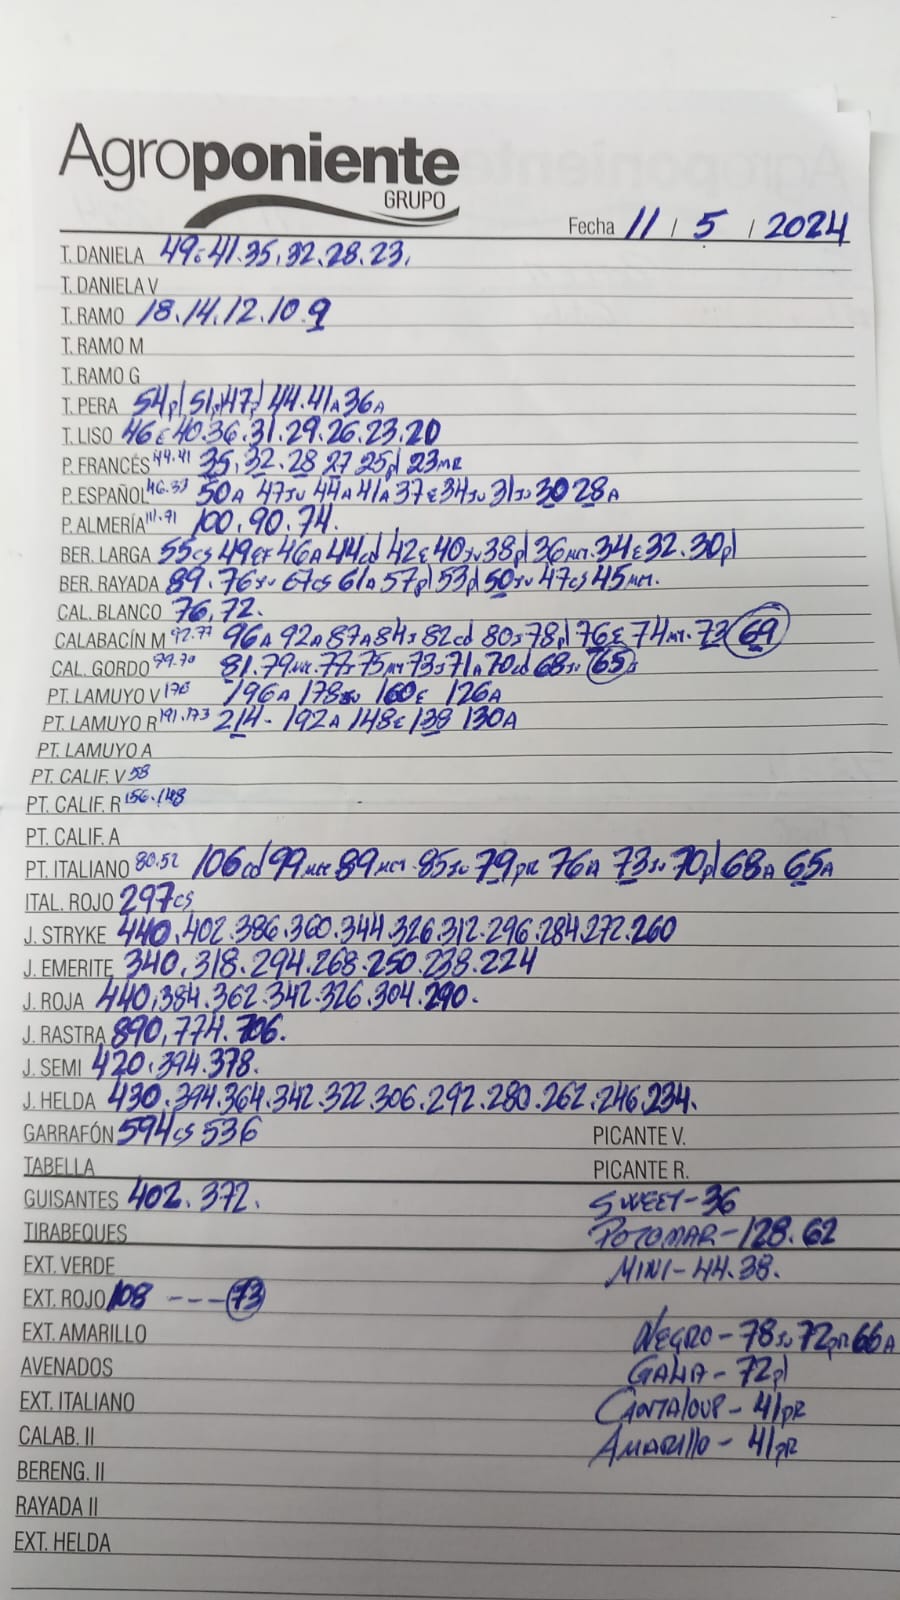 Agroponiente
GRUPO
Fecha 11 / 5 / 2024
T. DANIELA 49E 41.35.32.28.23.
T. DANIELA V
T. RAMO 18.14.12.10.9
T. RAMO M
T. RAMO G
T. PERA 54pl 51pl 47pl 44.41A 36A
T. LISO 46E 40.36.31.29.26.23.20
P. FRANCÉS 44.41 35.32.28 27 25pl 23MR
P. ESPAÑOL 46.37 50A 47JU 44A 41A 37E 34JU 31JU 30 28A
P. ALMERÍA 111.91 100.90.74.
BER. LARGA 55CS 49EF 46A 44cd 42E 40JU 38pl 36MM.34E 32.30pl
BER. RAYADA 89.76JU 67CS 61A 57pl 53pl 50JU 47CS 45MM.
CAL. BLANCO 76,72.
CALABACÍN M 92.77 96A 92A 87A 84J 82cd 80J 78pl 76E 74MM.73 69
CAL. GORDO 99.70 81.79MM.77J 75MM 73J 71A 70cd 68JU 65A
PT. LAMUYO V 178 196A 178JU 160E 126A
PT. LAMUYO R 191.173 214- 192A 148E 138 130A
PT. LAMUYO A
PT. CALIF. V 58
PT. CALIF. R 156.148
PT. CALIF. A
PT. ITALIANO 80.52 106cd 99MM 89MM 85JU 79PR 76A 73JU 70pl 68A 65A
ITAL. ROJO 297CS
J. STRYKE 440.402.386.360.344.326.312.296.284.272.260
J. EMERITE 340.318.294.268.250.238.224
J. ROJA 440.384.362.342.326.304.290.
J. RASTRA 890,774.706.
J. SEMI 420.394.378.
J. HELDA 430.394.364.342.322.306.292.280.262.246.234.
GARRAFÓN 594CS 536 PICANTE V.
TABELLA PICANTE R.
GUISANTES 402.372. SWEET-36
TIRABEQUES POTOMAR-128.62
EXT. VERDE MINI-44.38.
EXT. ROJO 108 ---73
EXT. AMARILLO NEGRO-78JU 72PR 66A
AVENADOS GALIA-72pl
EXT. ITALIANO CANTALOUP-41PR
CALAB. II AMARILLO-41PR
BERENG. II
RAYADA II
EXT. HELDA